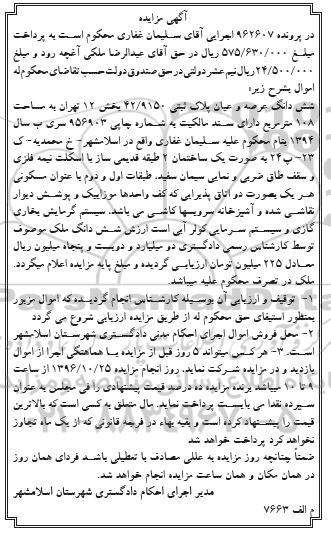 آگهی مزایده
در پرونده ۹۶۲۶۰۷ اجرایی آقای سلیمان غفاری محکوم است به پرداخت
مبلغ ۵۷۵/۶۳۰/۰۰۰ ریال در حق آقای عبدالرضا ملکی آغچه رود و مبلغ
۲۴/۵۰۰/۰۰۰ ریال نیم عشر دولتی در حق صندوق دولت حسب تقاضای محکوم له
اموال بشرح زیر:
شش دانگ عرصه و عیان پلاک ثبتی ۴۲/۹۱۵۰ بخش ۱۲ تهران به مساحت
۱۰۸ مترمربع دارای سند مالکیت به شماره چاپی ۹۵۶۹۰۳ سری ب سال
۱۳۹۴ بنام محکوم علیه سلیمان غفاری واقع در اسلامشهر- خ محمدیه- ک
۲۳- پ۲۴ به صورت یک ساختمان ۲ طبقه قدیمی ساز با اسکلت نیمه فلزی
و سقف طاق ضربی و نمایی سیمان سفید. طبقات اول و دوم با عنوان مسکونی
هر یک بصورت دو اتاق پذیرایی که کف واحدها موزاییک و پوشش دیوار
نقاشی شده و آشپزخانه سرویسها کاشی می باشد. سیستم گرمایش بخاری
گازی و سیستم سرمایی کولر آبی است ارزش شش دانگ ملک موصوف
توسط کارشناس رسمی دادگستری دو میلیارد و دویست و پنجاه میلیون ریال
معادل ۲۲۵ میلیون تومان ارزیابی گردیده و مبلغ پایه مزایده اعلام میگردد.
ملک در تصرف محکوم علیه میباشد.
۱- توقیف و ارزیابی آن بوسیله کارشناس انجام گردیده که اموال مزبور
بمنظور استیفای حق محکوم له از طریق مزایده ارزیابی شروع می گردد
۲- محل فروش اموال اجرای احکام مدنی دادگستری شهرستان اسلامشهر
است. ۳- هر کسی میتواند ۵ روز قبل از مزایده با هماهنگی اجرا از اموال
بازدید و در مزایده شرکت نماید. روز انجام مزایده ۱۳۹۶/۱۰/۲۵ از ساعت
۹ تا ۱۰ میباشد برنده مزایده ده درصد قیمت پیشنهادی را فی مجلس به عنوان
سپرده نقدا می بایست پرداخت نماید. مال متعلق به کسی است که بالاترین
قیمت را پیشنهاد کرده است و بقیه بهاء در فرجه قانونی که از یک ماه تجاوز
نخواهد کرد پرداخت خواهد شد
ضمناً چنانچه روز مزایده به عللی مصادف با تعطیلی باشد فردای همان روز
در همان مکان و همان ساعت مزایده انجام خواهد شد.
مدیر اجرای احکام دادگستری شهرستان اسلامشهر
م الف ۷۶۶۳